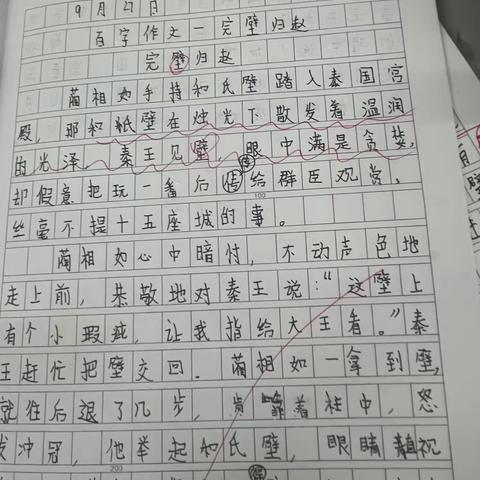 9月27日
百字作文一完壁归赵
完壁归赵
蔺相如手持和氏壁踏入秦国宫
殿，那和氏壁在烛光下散发着温润
的光泽。秦王见壁，眼中满是贪婪，
却假意把玩一番后传给群臣观赏，
丝毫不提十五座城的事。
100
蔺相如心中暗付，不动声色地
走上前，恭敬地对秦王说：“这壁上
有个小瑕疵，让我指给大王看。”秦
王赶忙把壁交回。蔺相如一拿到壁，
就往后退了几步，靠着柱中，怒
发冲冠，他举起和氏壁，眼睛视
200